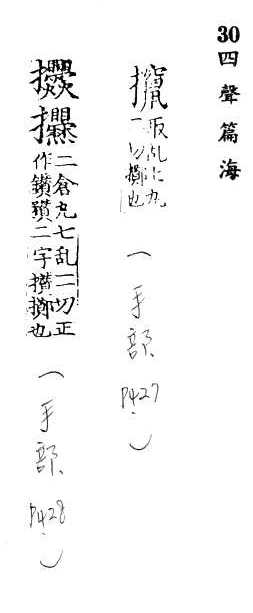 30 四聲篇海
攛
乱七丸
二切擲也
(手部 P427)
二倉丸七乱二切正
作二字擲也
(手部 P428)